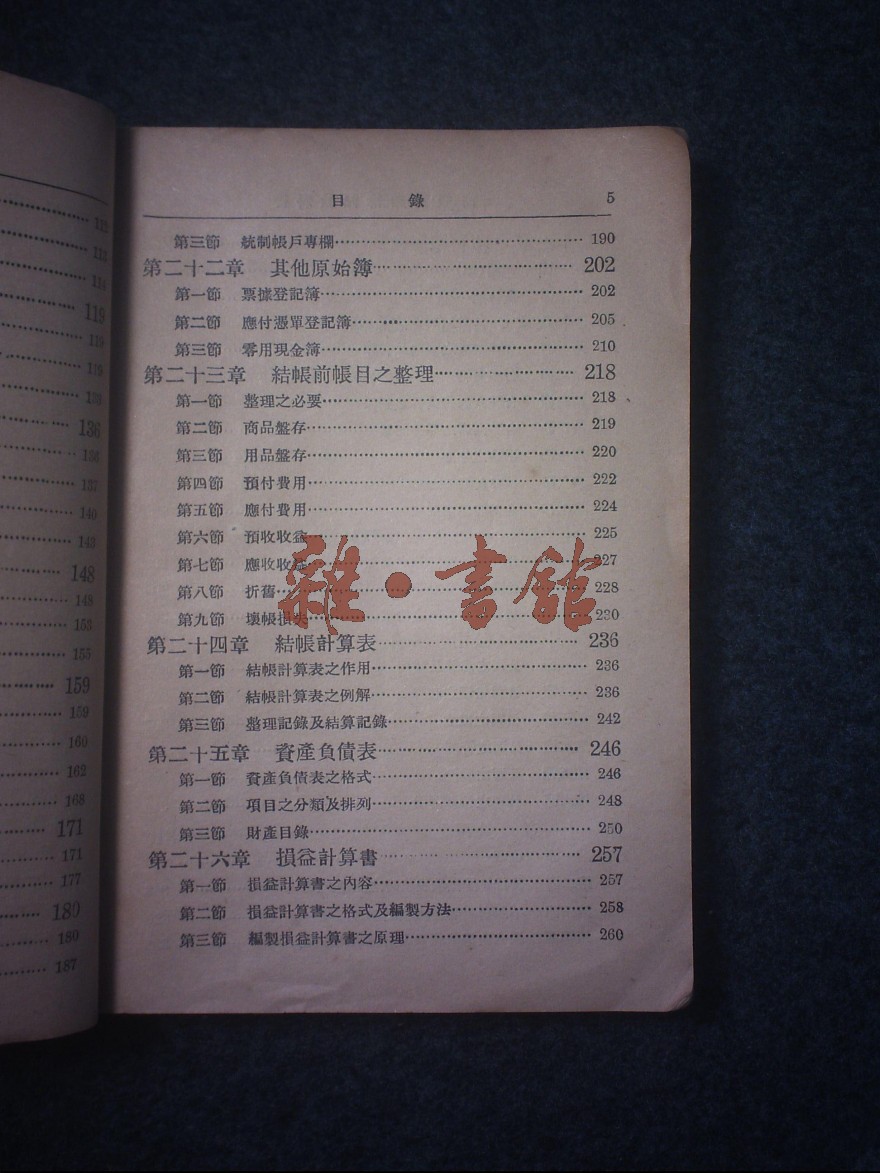 112
112
114
119
119
119
133
136
136
137
140
143
148
148
153
155
159
159
160
162
168
171
171
177
180
180
187
目錄 5
第三節 統制帳戶專欄 190
第二十二章 其他原始簿 202
第一節 票據登記簿 202
第二節 應付憑單登記簿 205
第三節 零用現金簿 210
第二十三章 結帳前帳目之整理 218
第一節 整理之必要 218
第二節 商品盤存 219
第三節 用品盤存 220
第四節 預付費用 222
第五節 應付費用 224
第六節 預收收益 225
第七節 應收收益 227
第八節 折舊 228
第九節 壞帳損失 230
第二十四章 結帳計算表 236
第一節 結帳計算表之作用 236
第二節 結帳計算表之例解 236
第三節 整理記錄及結算記錄 242
第二十五章 資產負債表 246
第一節 資產負債表之格式 246
第二節 項目之分類及排列 248
第三節 財產目錄 250
第二十六章 損益計算書 257
第一節 損益計算書之內容 257
第二節 損益計算書之格式及編製方法 258
第三節 編製損益計算書之原理 260
雜·書館